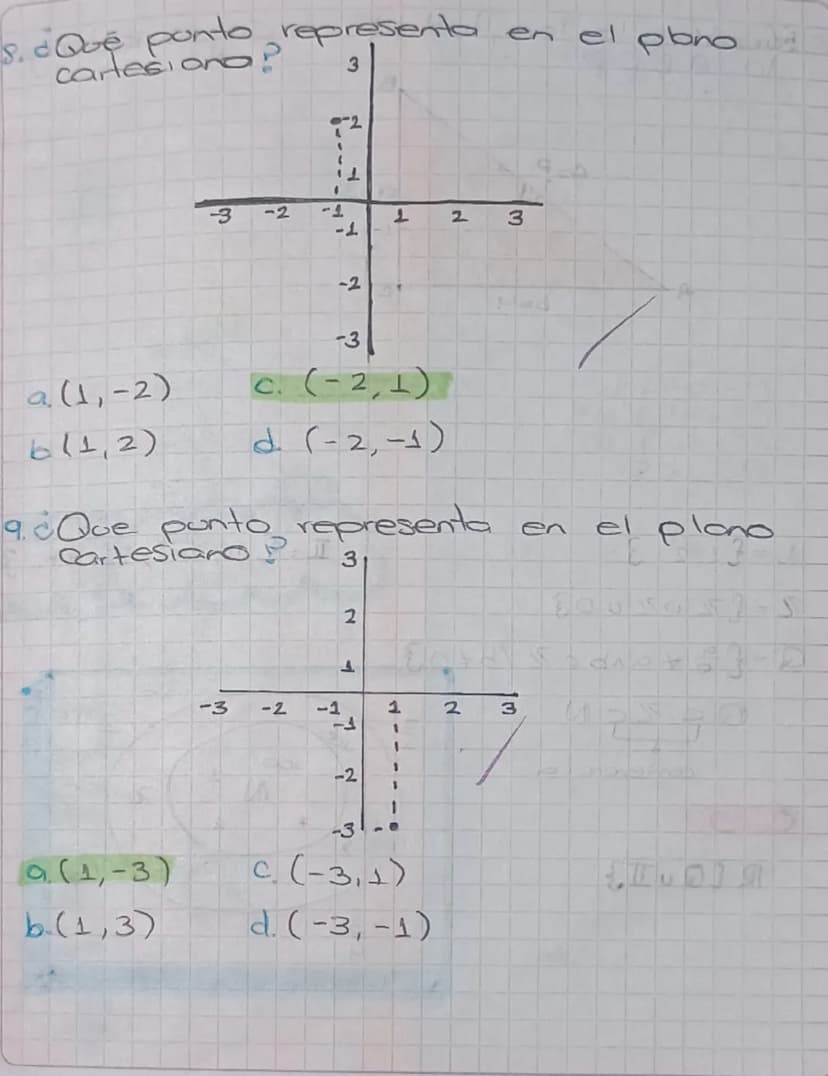 8. ¿Qué punto representa en el plano
cartesiano?
3
2
1
-3 -2 -1 1 2 3
-1
-2
-3
a. (1, -2) c. (-2, 1)
b (1, 2) d. (-2, -1)
9. ¿Que punto representa en el plano
cartesiano?
3
2
1
-3 -2 -1 1 2 3
-1
-2
-3
a. (1, -3) c. (-3, 1)
b. (1, 3) d. (-3, -1)